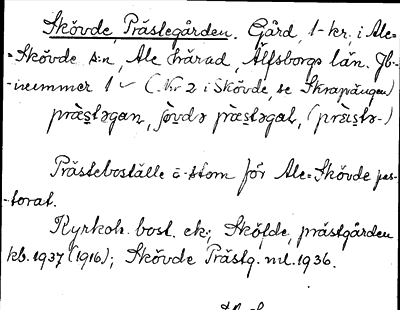 Skövde, Prästegården. Gård, 1-kr. i Ale-
-Skövde s:n, Ale härad, Älfsborgs län. Jb-
-nummer 1 (Nr 2 i Skövde, se Skrapången)
Prästeboställe ä stom för Ale-Skövde pas-
-torat.
Kyrkoh. bost. ek.; Sköfde, prästgården
kb. 1937 (1916); Skövde Prästg. ml. 1936.